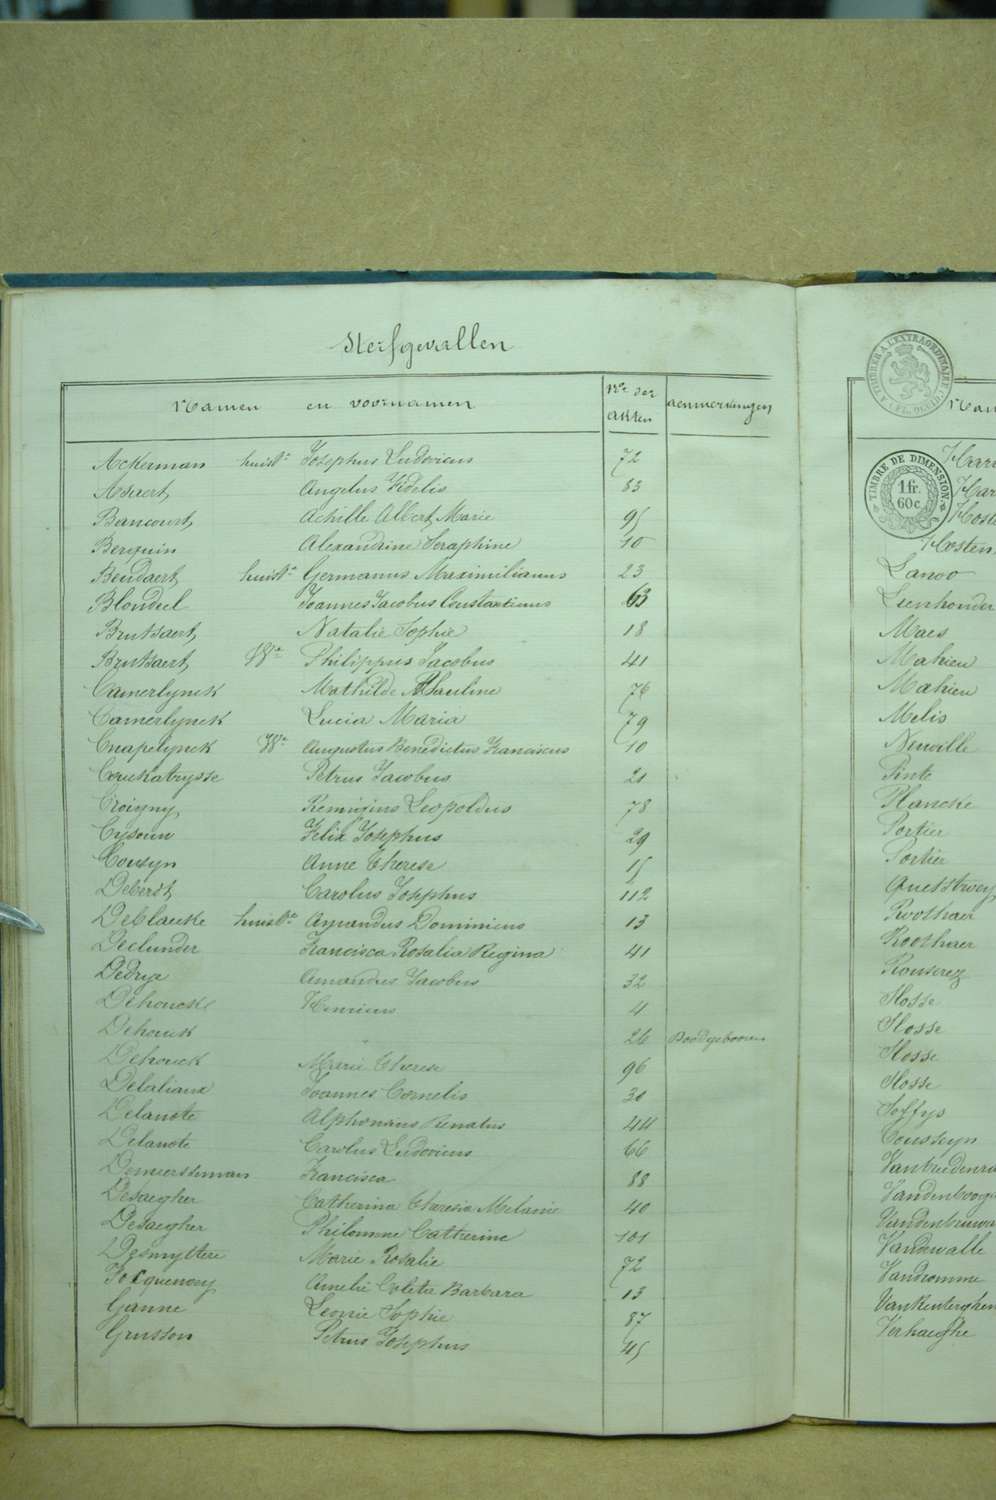 Sterfgevallen
Namen en voornamen Nrs der akten aenmerkingen
Ackerman huisv.e Josephus Ludovicus 72
Assaert Angelus Fidelis 83
Bancourt Achille Albert Marie 95
Berquin Alexandrine Seraphine 10
Beudaert huisv.e Germanus Maximilianus 23
Blondeel Joannes Jacobus Constantinus 63
Brutsaert Natalie Sophie 18
Brutsaert We Philippus Jacobus 41
Camerlynck Mathilde Pauline 76
Camerlynck Lucia Maria 79
Cnapelynck We Augustus Benedictus Franciscus 10
Coeckatrysse Petrus Jacobus 21
Croigny Remigius Leopoldus 78
Cysoun Felix Josephus 29
Cousyn Anne Therese 15
Deberdt Carolus Josephus 112
DeBlaucke huisv.e Amandus Dominicus 13
Declunder Francisca Rosalia Regina 41
Dedrye Amandus Jacobus 32
Dehouck Henricus 4
Dehouck 26 Doodgeboren
Dehouck Marie Therese 96
Delaliaux Joannes Cornelis 30
Delanote Alphonsus Renatus 44
Delanote Carolus Ludovicus 66
Demeersseman Francisca 88
Desaegher Catherina Theresia Melanie 40
Desaegher Philomene Catherine 101
Desmyttere Marie Rosalie 72
Focquenoey Amelie Coleta Barbara 13
Ganne Leonie Sophie 87
Grusson Petrus Josephus 45
A TIMBRER A L'EXTRAORDINAIRE
TIMBRE DE DIMENSION
1 fr.
60 c.
Nam
Harr
Har
Hoste
Hosten
Lanoo
Leenhouder
Maes
Mahieu
Mahieu
Melis
Neuville
Pinte
Plancke
Portier
Portier
Questroey
Roothaer
Roothaer
Rouserez
Slosse
Slosse
Slosse
Slosse
Soffys
Cousseyn
Vanbriedenro
Vandenboog
Vandenbrouw
Vandewalle
Vandromme
VanRenterghem
Verhaeghe